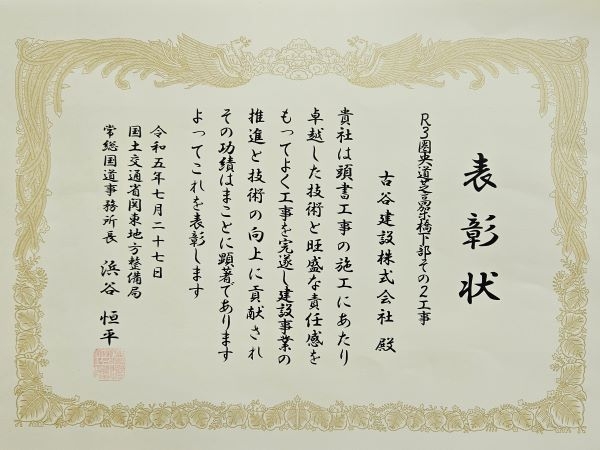 表彰状
R3圏央道芝高架橋下部その2工事
古谷建設株式会社 殿
貴社は頭書工事の施工にあたり
卓越した技術と旺盛な責任感を
もってよく工事を完遂し建設事業の
推進と技術の向上に貢献され
その功績はまことに顕著であります
よってこれを表彰します
令和五年七月二十七日
国土交通省関東地方整備局
常総国道事務所長 浜谷 恒平